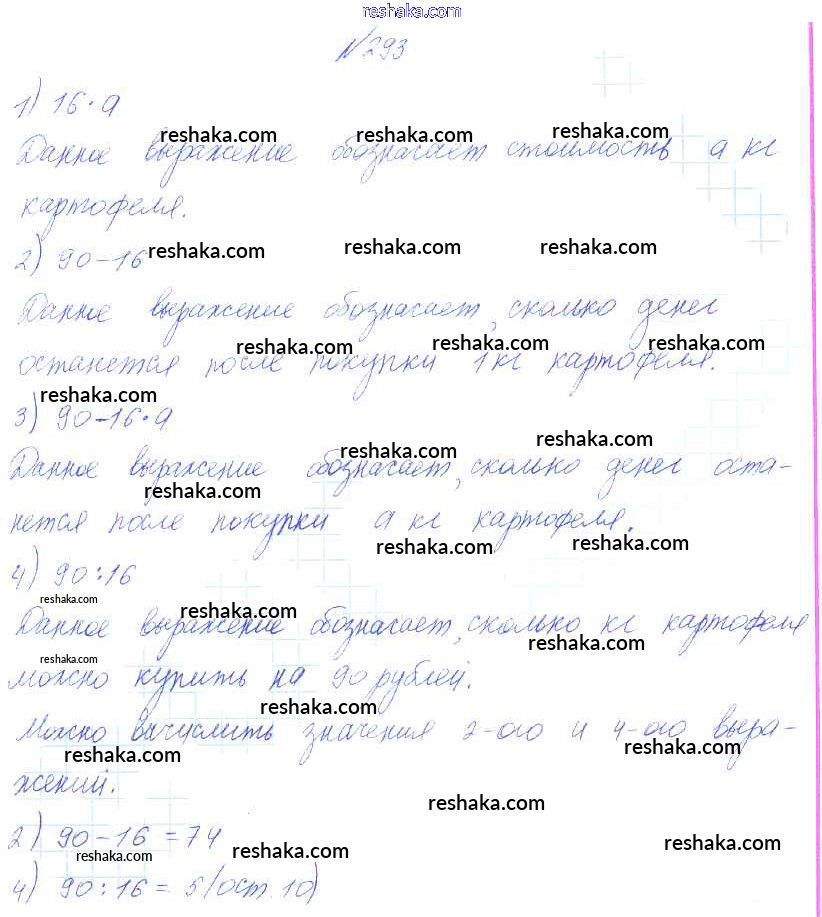 reshaka.com
№293
1) 16·a
reshaka.com reshaka.com reshaka.com
Данное выражение обозначает стоимость a кг
картофеля.
reshaka.com reshaka.com reshaka.com
2) 90-16
Данное выражение обозначает, сколько денег
reshaka.com reshaka.com reshaka.com
останется после покупки 1 кг картофеля.
reshaka.com
3) 90-16·a
reshaka.com reshaka.com
Данное выражение обозначает, сколько денег оста-
reshaka.com
нется после покупки a кг картофеля.
reshaka.com reshaka.com
4) 90:16
reshaka.com reshaka.com
Данное выражение обозначает, сколько кг картофеля
reshaka.com reshaka.com
можно купить на 90 рублей.
reshaka.com
Можно вычислить значения 2-ого и 4-ого выра-
reshaka.com reshaka.com
жений.
reshaka.com
2) 90-16=74
reshaka.com reshaka.com reshaka.com
4) 90:16=5(ост.10)